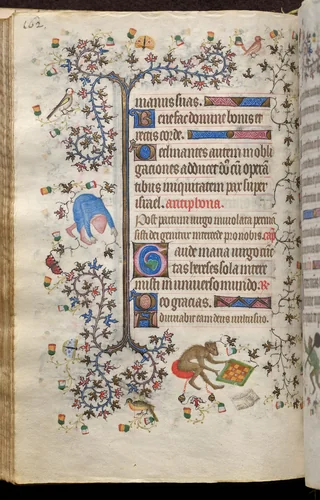 162
manus suas.
Benefac domine bonis et
rectis corde.
Declinantes autem in obli
gationes adducet dn̄s cū operā
tibus iniquitatem pax super
israel. antiphona.
Post partum virgo inviolata permā
sisti dei genitrix intercede pro nobis. cap
Gaude maria virgo cūc
tas hereses sola intere
misti in universo mundo. R
Deo gracias.
Adiuvabit eam deus vultu suo.